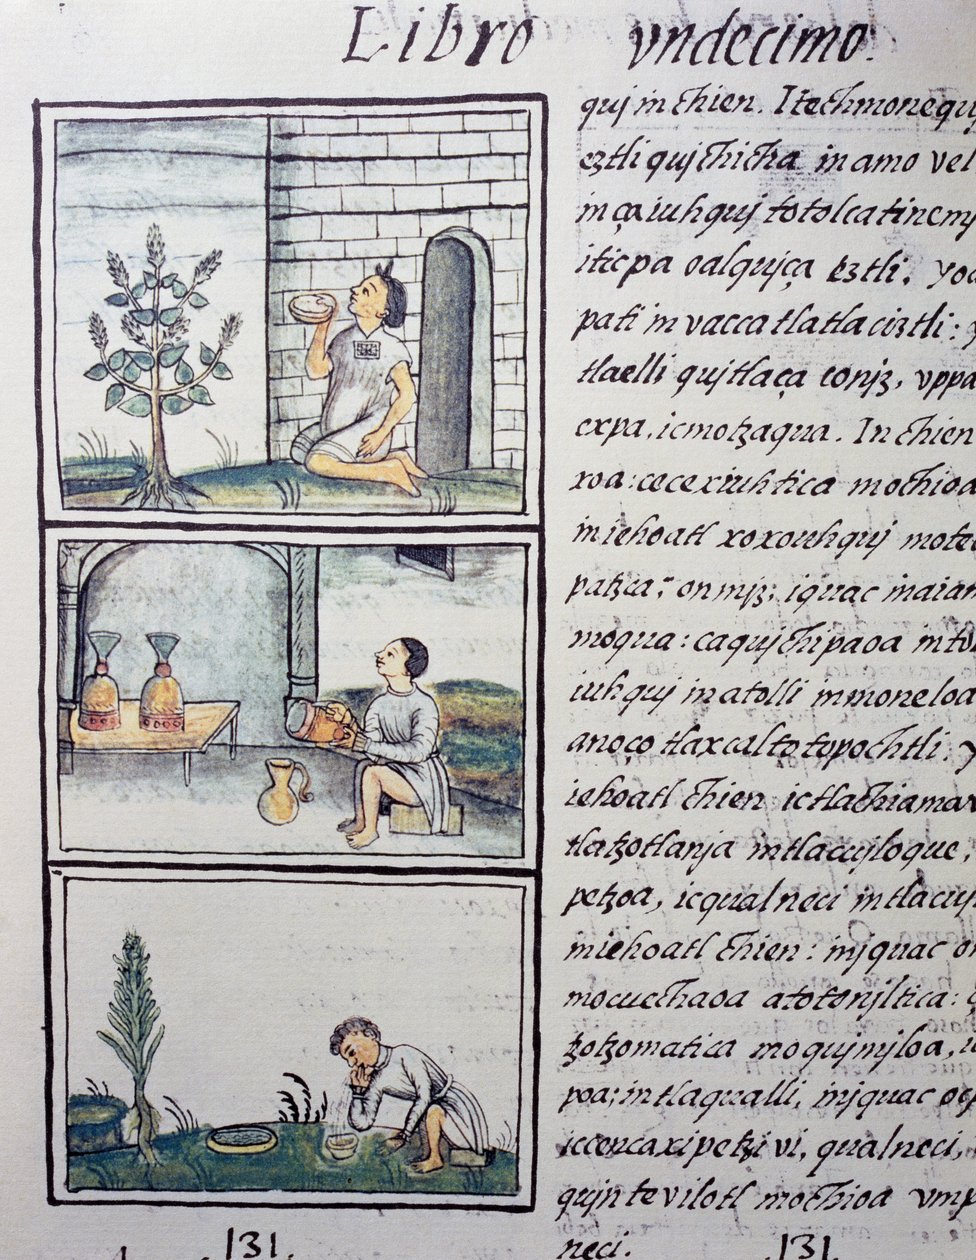 Libro vndecimo.
quj in chien. Itechmonequj
eztli qujchicha in amo vel
in ça iuhquj totolcatinemj
iticpa oalqujça eztli,
pati in vaccatlatlaciztli:
tlaelli qujtlaça conjz, vppa
expa, ic motzaqua. In chien
xoa: cecexiuhtica mochioa
in iehoatl xoxouhquj
patzca; on mjz; iquac
moqua: ca qujchipaoa in
iuhquj in atolli mmoneloa
anoço tlaxcaltotopochtli.
iehoatl chien ic tlachiamaxi
tlatzotlanja in tlacujloque,
petzoa, ic qualneci in tlacuj
in iehoatl chien: injquac
mocuechaoa atotonjltica:
tzotzomatica moqujnjloa,
poa; in tlaqualli, injquac
iccencaxipetzivi, qualneci,
qujn tevilotl mochioa vmp
neci.
.131. .131.